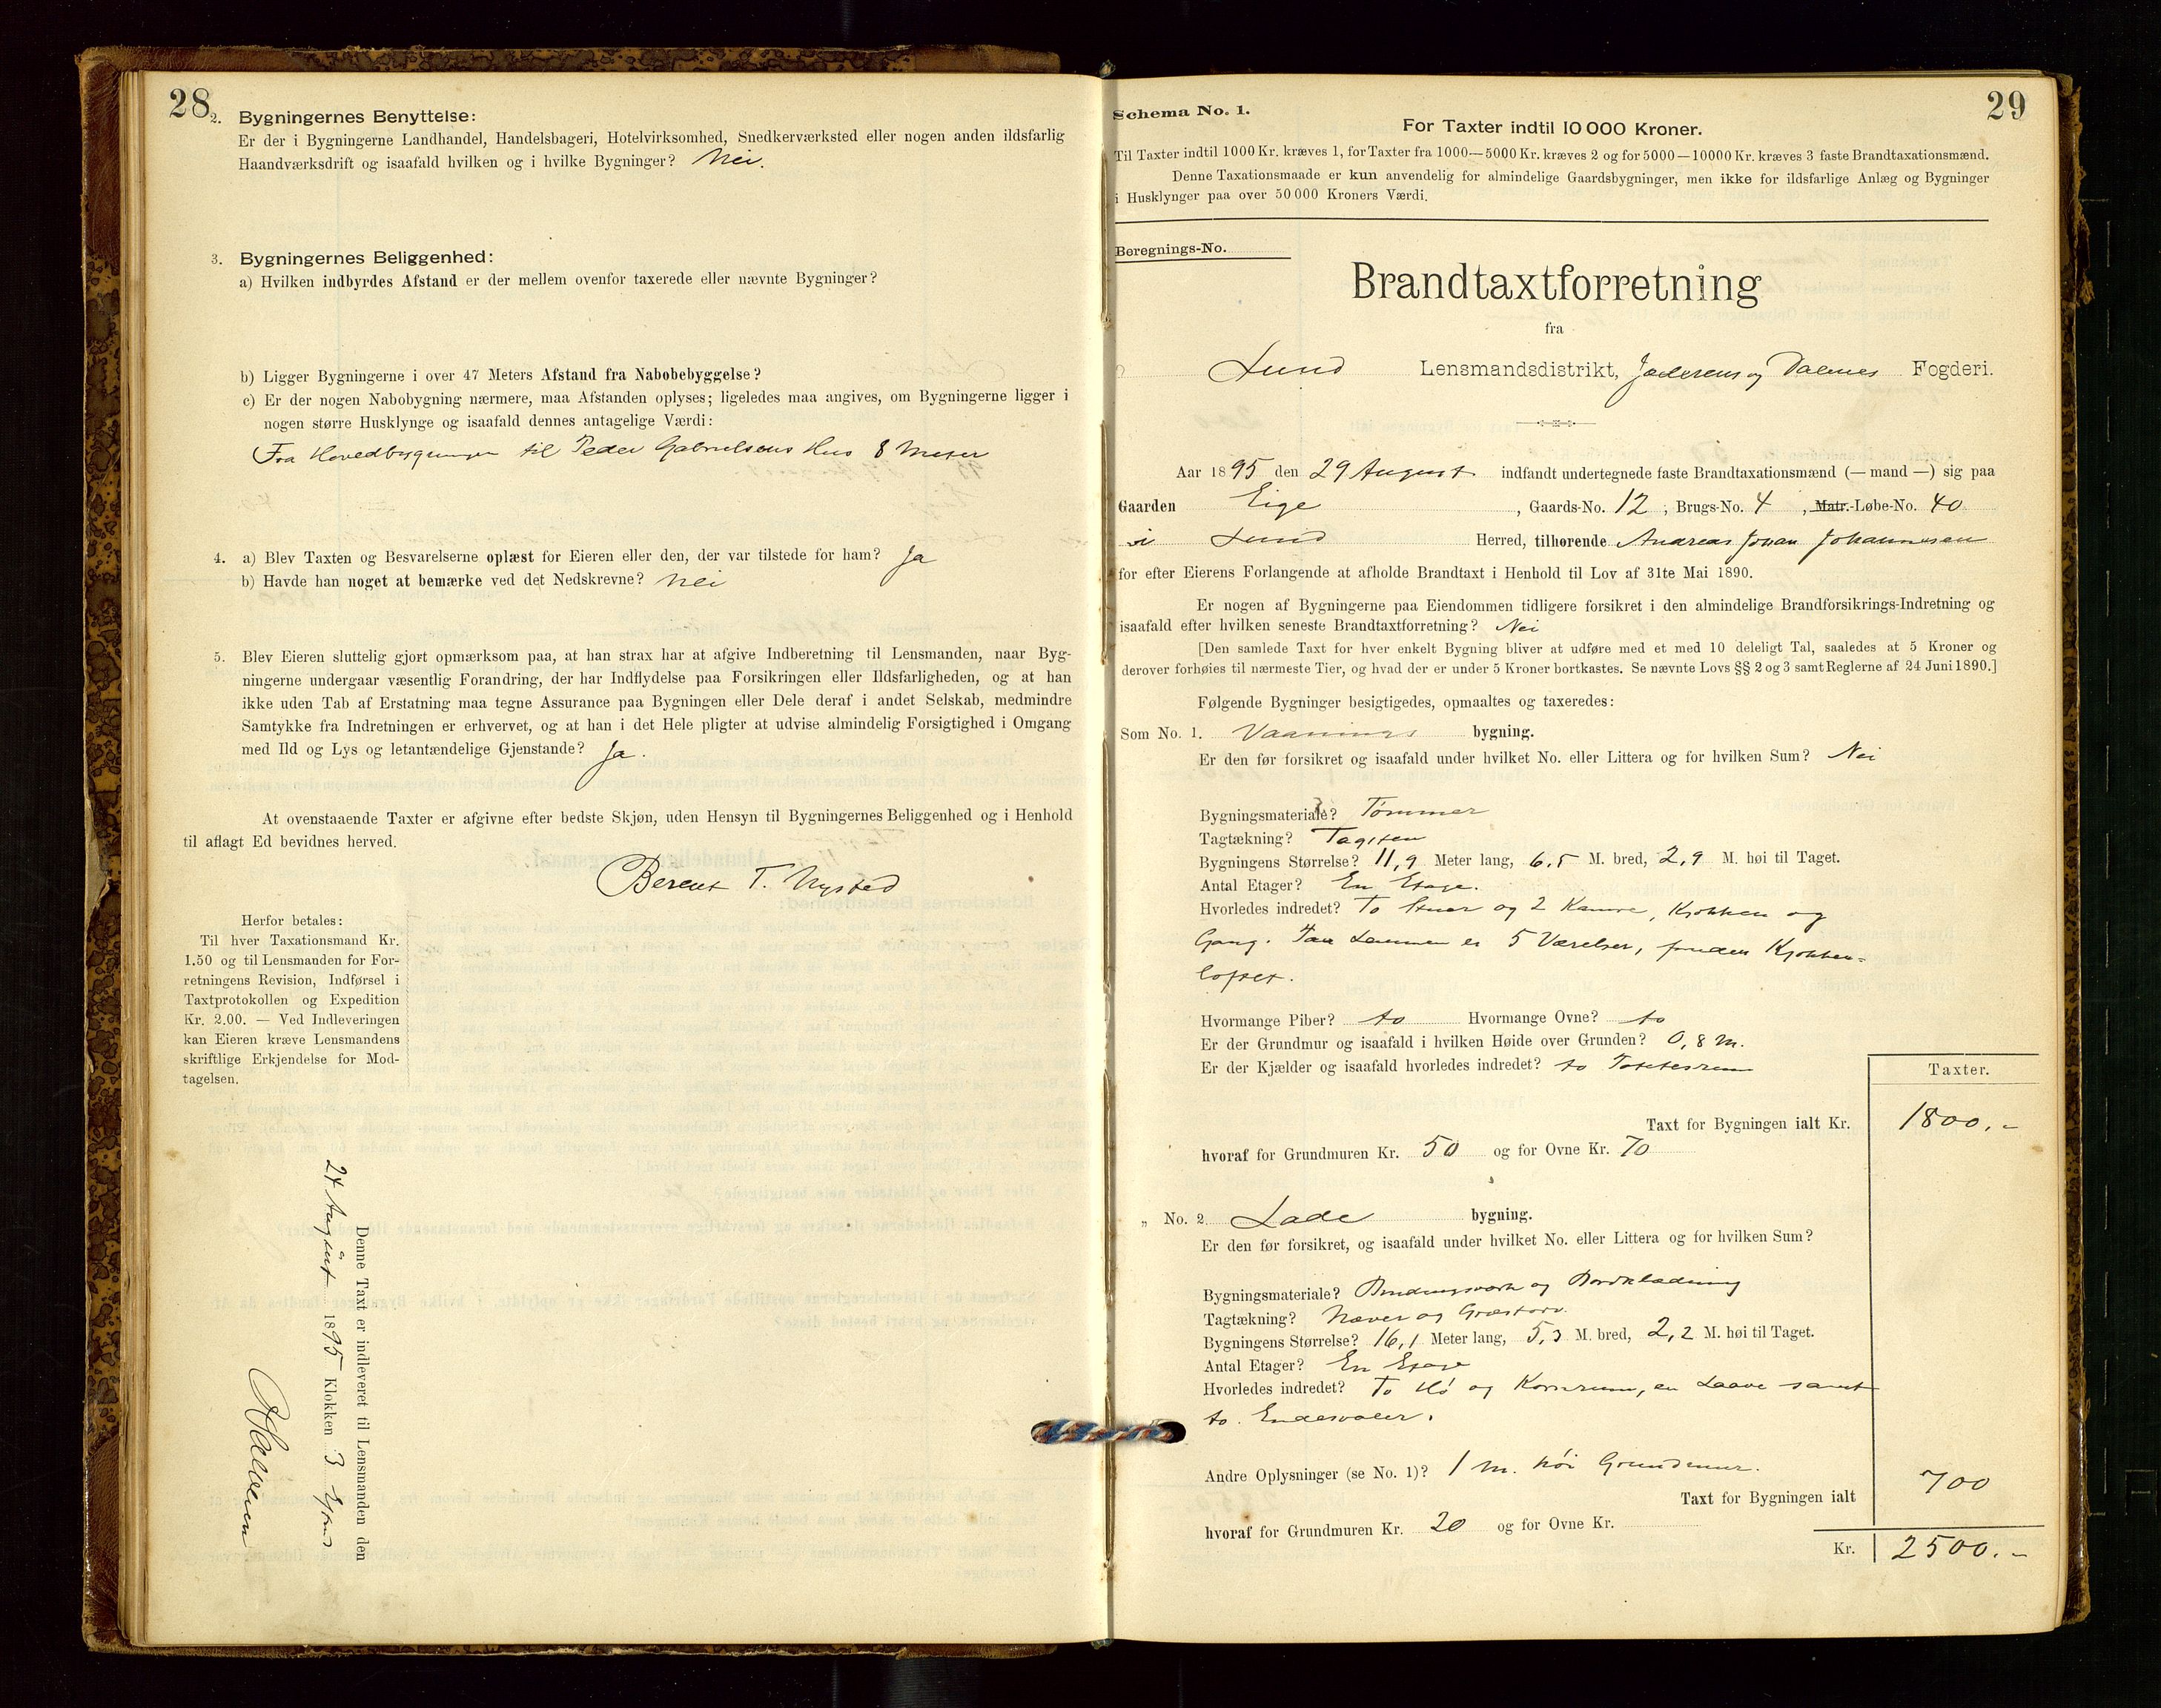 28
2. Bygningernes Benyttelse:
Er der i Bygningerne Landhandel, Handelsbageri, Hotelvirksomhed, Snedkerværksted eller nogen anden ildsfarlig
Haandværksdrift og isaafald hvilken og i hvilke Bygninger? Nei.
3. Bygningernes Beliggenhed:
a) Hvilken indbyrdes Afstand er der mellem ovenfor taxerede eller nævnte Bygninger?
b) Ligger Bygningerne i over 47 Meters Afstand fra Nabobebyggelse?
c) Er der nogen Nabobygning nærmere, maa Afstanden oplyses; ligeledes maa angives, om Bygningerne ligger i
nogen større Husklynge og isaafald dennes antagelige Værdi:
Fra Hovedbygningen til Peder Gabrielsens Hus 8 Meter
4. a) Blev Taxten og Besvarelserne oplæst for Eieren eller den, der var tilstede for ham? Ja
b) Havde han noget at bemærke ved det Nedskrevne? Nei
5. Blev Eieren sluttelig gjort opmærksom paa, at han strax har at afgive Indberetning til Lensmanden, naar Byg-
ningerne undergaar væsentlig Forandring, der har Indflydelse paa Forsikringen eller Ildsfarligheden, og at han
ikke uden Tab af Erstatning maa tegne Assurance paa Bygningen eller Dele deraf i andet Selskab, medmindre
Samtykke fra Indretningen er erhvervet, og at han i det Hele pligter at udvise almindelig Forsigtighed i Omgang
med Ild og Lys og letantændelige Gjenstande? Ja.
At ovenstaaende Taxter er afgivne efter bedste Skjøn, uden Hensyn til Bygningernes Beliggenhed og i Henhold
til aflagt Ed bevidnes herved.
Berent T. Nysted
Herfor betales:
Til hver Taxationsmand Kr.
1.50 og til Lensmanden for For-
retningens Revision, Indførsel i
Taxtprotokollen og Expedition
Kr. 2.00. — Ved Indleveringen
kan Eieren kræve Lensmandens
skriftlige Erkjendelse for Mod-
tagelsen.
Denne Taxt er indleveret til Lensmanden den
24 August 1895 Klokken 3
29
Schema No. 1.
For Taxter indtil 10 000 Kroner.
Til Taxter indtil 1000 Kr. kræves 1, for Taxter fra 1000—5000 Kr. kræves 2 og for 5000—10000 Kr. kræves 3 faste Brandtaxationsmænd.
Denne Taxationsmaade er kun anvendelig for almindelige Gaardsbygninger, men ikke for ildsfarlige Anlæg og Bygninger
i Husklynger paa over 50 000 Kroners Værdi.
Beregnings-No.
Brandtaxtforretning
fra
Lund Lensmandsdistrikt, Jæderens og Dalenes Fogderi.
Aar 1895 den 29 August indfandt undertegnede faste Brandtaxationsmænd (— mand —) sig paa
Gaarden Eige, Gaards-No. 12, Brugs-No. 4, Matr.-Løbe-No. 40
i Lund Herred, tilhørende Andreas Johan Johannesen
for efter Eierens Forlangende at afholde Brandtaxt i Henhold til Lov af 31te Mai 1890.
Er nogen af Bygningerne paa Eiendommen tidligere forsikret i den almindelige Brandforsikrings-Indretning og
isaafald efter hvilken seneste Brandtaxtforretning? Nei
[Den samlede Taxt for hver enkelt Bygning bliver at udføre med et med 10 deleligt Tal, saaledes at 5 Kroner og
derover forhøies til nærmeste Tier, og hvad der er under 5 Kroner bortkastes. Se nævnte Lovs §§ 2 og 3 samt Reglerne af 24 Juni 1890.]
Følgende Bygninger besigtigedes, opmaaltes og taxeredes:
Som No. 1. Vaanings bygning.
Er den før forsikret og isaafald under hvilket No. eller Littera og for hvilken Sum? Nei
Bygningsmateriale? Tømmer
Tagtækning? Tagsten
Bygningens Størrelse? 11,9 Meter lang, 6,5 M. bred, 2,9 M. høi til Taget.
Antal Etager? En Etage.
Hvorledes indredet? To Stuer og 2 Kamre, Kjøkken og
Gang. Paa Lemmen er 5 Værelser, foruden Kjøkken-
loftet.
Hvormange Piber? to Hvormange Ovne? to
Er der Grundmur og isaafald i hvilken Høide over Grunden? 0,8 M.
Er der Kjælder og isaafald hvorledes indredet? to Potetesrum
Taxter.
Taxt for Bygningen ialt Kr. 1800.-
hvoraf for Grundmuren Kr. 50 og for Ovne Kr. 70
„ No. 2 Lade bygning.
Er den før forsikret, og isaafald under hvilket No. eller Littera og for hvilken Sum?
Bygningsmateriale? Bindingsværk og Bordklædning
Tagtækning? Næver og Græstorv.
Bygningens Størrelse? 16,1 Meter lang, 5,3 M. bred, 2,2 M. høi til Taget.
Antal Etager? En Etage
Hvorledes indredet? To Hø og Kornrum, en Laave samt
to Endesvaler.
Andre Oplysninger (se No. 1)? 1 M. høi Grundmur.
Taxt for Bygningen ialt 700
hvoraf for Grundmuren Kr. 20 og for Ovne Kr.
Kr. 2500.-